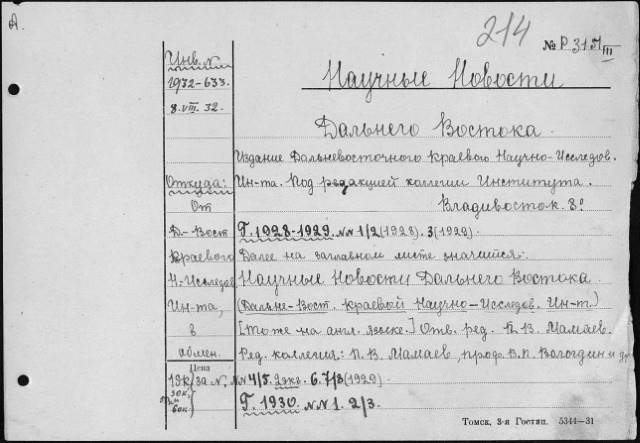 А.
214
№ Р 317/III
Инв. №
1932-633.
8.VIII.32.
Научные Новости
Дальнего Востока.
Издание Дальневосточного Краевого Научно-Исследов.
Ин-та. Под редакцией коллегии Института.
Владивосток. 8º
Откуда:
От
Д-Вост
Краевого
Н-Исследов
Ин-та,
в
обмен.
Г. 1928-1929. №№ 1/2 (1928). 3 (1929).
Далее на заглавном листе значится:
Научные Новости Дальнего Востока
(Дальне-Вост. Краевой Научно-Исследов. Ин-т.)
[То же на англ. языке.] Отв. ред. П. В. Мамаев.
Ред. коллегия: П. В. Мамаев, проф. В. П. Вологдин и др.
Цена
19к/за №, №№ 4/5. 2экз. 6. 7/8 (1929)
30к.
60к.
Г. 1930. №№ 1. 2/3.
Томск, 3-я Гостип. 5344—31